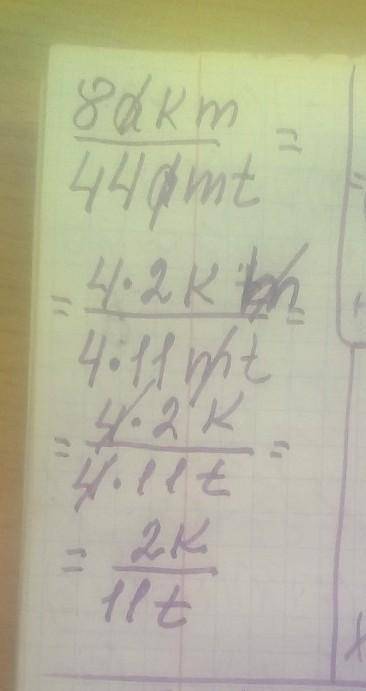 80km
=
440mt
4·2km
= =
4·11mt
4·2k
= =
4·11t
2k
=
11t